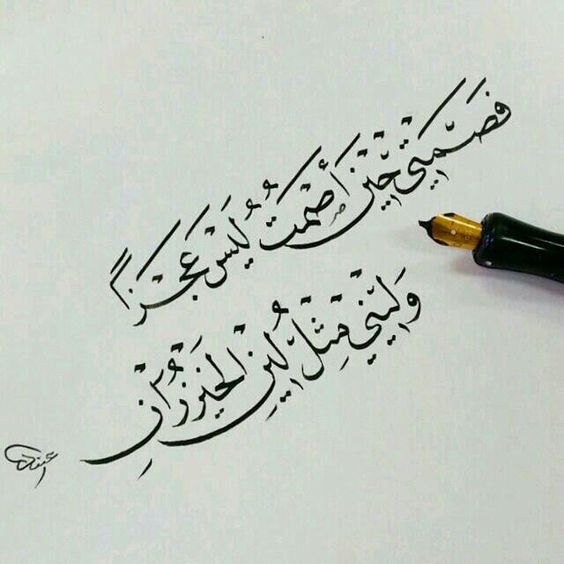 فَصَمْتِي حِيْنَ أَصْمُتُ لَيْسَ عَجْزَاً
وَلِيْنِي مِثْلَ لِيْنِ الْخَيْزُرَانِ